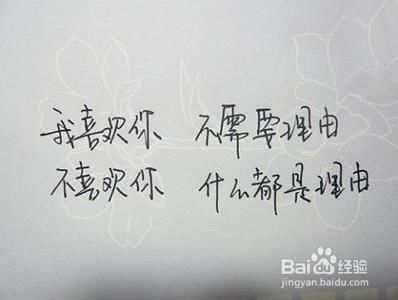 我喜欢你 不需要理由
不喜欢你 什么都是理由
Baidu 经验
jingyan.baidu.com